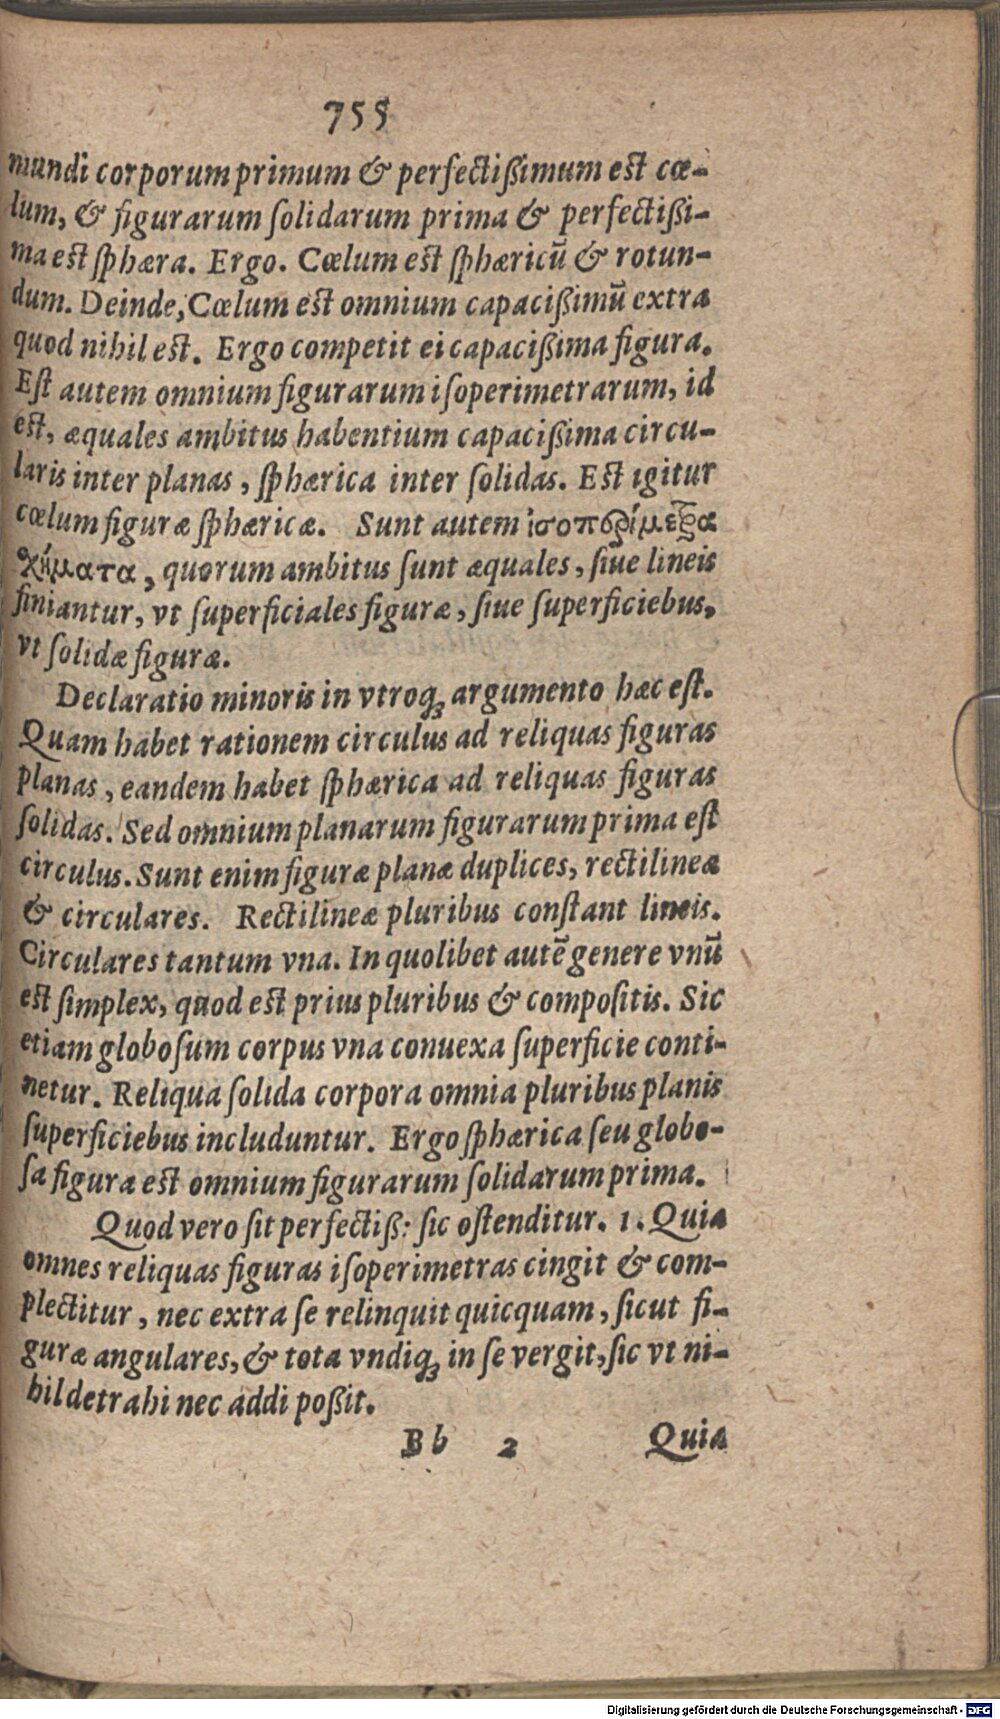 755
mundi corporum primum & perfectißimum est cœ-
lum, & figurarum ſolidarum prima & perfectißi-
ma est ſphæra. Ergo. Cœlum est ſphæricũ & rotun-
dum. Deinde, Cœlum est omnium capacißimũ extra
quod nihil est. Ergo competit ei capacißima figura.
Eſt autem omnium figurarum iſoperimetrarum, id
est, æquales ambitus habentium capacißima circu-
laris inter planas, ſphærica inter ſolidas. Est igitur
cœlum figuræ ſphæricæ. Sunt autem ἰσοπερίμετρα
σχήματα, quorum ambitus ſunt æquales, ſiue lineis
finiantur, vt ſuperficiales figuræ, ſiue ſuperficiebus,
vt ſolidæ figuræ.
Declaratio minoris in vtroqꝫ argumento hæc eſt.
Quam habet rationem circulus ad reliquas figuras
planas, eandem habet ſphærica ad reliquas figuras
ſolidas. Sed omnium planarum figurarum prima eſt
circulus. Sunt enim figuræ planæ duplices, rectilineæ
& circulares. Rectilineæ pluribus conſtant lineis.
Circulares tantum vna. In quolibet autẽ genere vnũ
est ſimplex, quod est prius pluribus & compoſitis. Sic
etiam globoſum corpus vna conuexa ſuperficie conti-
netur. Reliqua ſolida corpora omnia pluribus planis
ſuperficiebus includuntur. Ergo ſphærica ſeu globo-
ſa figura est omnium figurarum ſolidarum prima.
Quod vero ſit perfectiß: ſic oſtenditur. 1. Quia
omnes reliquas figuras iſoperimetras cingit & com-
plectitur, nec extra ſe relinquit quicquam, ſicut fi-
guræ angulares, & tota vndiqꝫ in ſe vergit, ſic vt ni-
hil detrahi nec addi poßit.
Bb 2 Quia
Digitalisierung gefördert durch die Deutsche Forschungsgemeinschaft - DFG